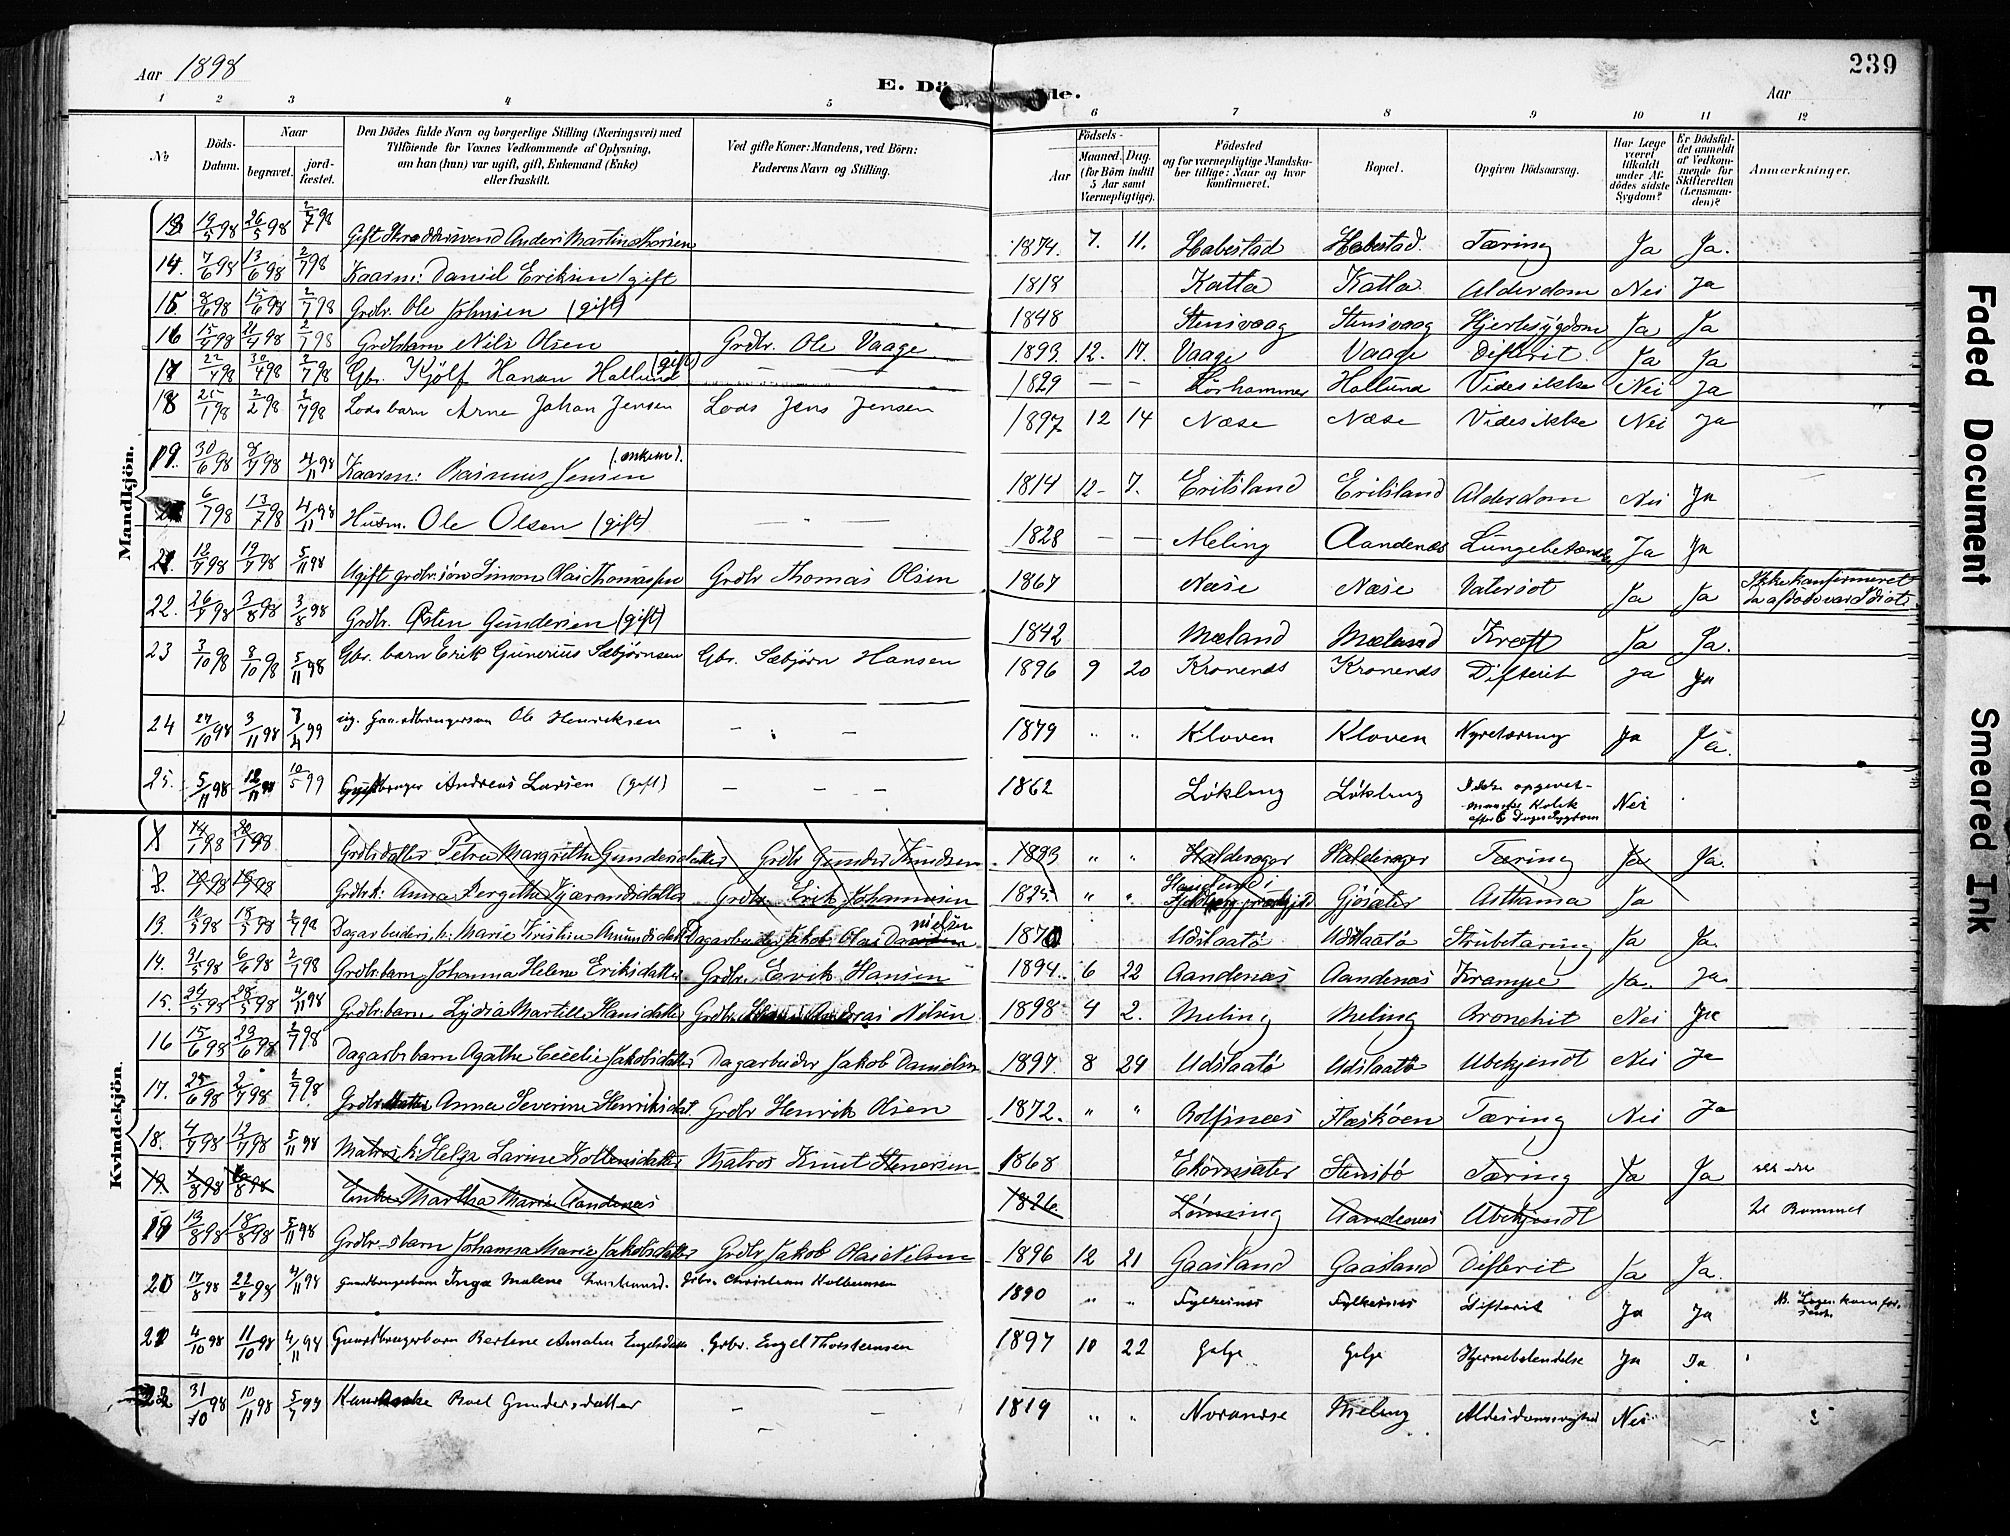 Aar 1898
E. Dö de.
Aar
239
1 2 3 4 5 6 7 8 9 10 11 12
№
Döds-Datum.
Naar
begravet.
jord-fæstet.
Den Dödes fulde Navn og borgerlige Stilling (Næringsvei) med Tilföiende for Voxnes Vedkommende af Oplysning, om han (hun) var ugift, gift, Enkemand (Enke) eller fraskilt.
Ved gifte Koner: Mandens, ved Börn: Faderens Navn og Stilling.
Födsels-
Aar
Maaned. Dag.
(for Börn indtil 5 Aar samt Værnepligtige).
Födested og for værnepligtige Mandskaber tillige: Naar og hvor konfirmeret.
Bopæl.
Opgiven Dödsaarsag.
Har Læge været tilkaldt under Afdödes sidste Sygdom?
Er Dödsfaldet anmeldt af Vedkommende for Skifteretten (Lensmanden)?
Anmærkninger.
Mandkjön.
13 19/5 98 26/5 98 2/7 98 Gift Skræddersvend Anders Martin Thorsen 1874. 7. 11. Habestad Habestad. Tæring Ja Ja.
14. 7/6 98 13/6 98 2/7 98 Kaarm: Daniel Eriksen (gift 1818 Katla Katla Alderdom Nei Ja
15. 8/6 98 15/6 98 2/7 98 Grdbr. Ole Johnsen (gift) 1848 Stensvaag Stensvaag Hjertesygdom Ja Ja
16 15/4 98 21/4 98 2/7 98 Grdbrbarn Nils Olsen Grdbr. Ole Vaage 1893 12. 17. Vaage Vaage Difterit. Ja Ja
17 22/4 98 30/4 98 2/7 98 Gbr. Kjölf Hansen Hallund (gift) 1829 — — Sörhammer Hallund Vides ikke Nei Ja
18 25/1 98 2/2 98 2/7 98 Lodsbarn Arne Johan Jensen Lods Jens Jensen 1897 12 14 Næse Næse Vides ikke Nei Ja
19. 30/6 98 8/7 98 4/11 98 Kaarm: Rasmus Jensen (enkem). 1814 12- 7. Eritsland Eritsland Alderdom Nei Ja
6/7 98 13/7 98 4/11 98 Husm. Ole Olsen (gift) — — 1828 — — Meling Aandenæs Lungebetændelse Ja Ja
21. 12/7 98 19/7 98 5/11 98 Ugift grdbr.sön Simon Olai Thomassen Grdbr Thomas Olsen 1867 Næse Næse Vatersot Ja Ja Ikke konfirmeret da afdöde var Idiot.
22. 26/7 98 3/8 98 3/8 98 Grdbr. Østen Gundersen (gift) 1842 Mæland Mæland Kræft Ja Ja.
23 3/10 98 8/10 98 5/11 98 Gbr. barn Erik Gunerius Sæbjörnsen Gbr. Sæbjörn Hansen 1896 9 20 Kronenes Kronenes Difterit Ja Ja
24 27/10 98 3/11 98 7/4 99 ug. Gaardbrugersøn Ole Henriksen — — 1879 " " Kloven Kloven Nyretæring Ja Ja.
25. 5/11 98 12/11 98 10/5 99 Gaardbruger Andreas Larsen (gift) — — — 1862 Løkling Løkling Ikke opgivet- maaske Kolik efter 6 Dages Sygdom Nei
Kvindekjön.
14/1 98 20/1 98 Grdbrdatter Petra Margrethe Gundersdatter Grdbr Gunder Knudsen 1883 " " Haldorager Haldorager Tæring Ja Ja.
98 98 Grdbrk: Anna Bergitha Kjærandsdatter Grdbr Erik Johannesen 1825. " " Haugland i Fjeldberg præstegjeld Gjösæter Asthama Ja
13. 10/5 98 18/5 98 2/7 98 Dagarbeiders k: Marie Kristine Amundsdatter Dagarbeider Jakob Olai Danielsen 1870 Udslaatö Udslaatö Strubetæring Ja Ja.
14. 31/5 98 6/6 98 2/7 98 Grdbr.barn Johanna Helene Eriksdatter Grdbr. Erik Hansen 1894. 6 22 Aandenæs Aandenæs Krampe Ja. Ja
15. 24/5 98 28/5 98 4/11 98 Grdbr.barn Lydia Martille Hansdatter Grdbr. Hans Andreas Nilsen 1898 4 2. Meling Meling Bronchit Nei Ja
16 15/6 98 23/6 98 2/7 98 Dagarb.barn Agathe Cecelie Jakobsdatter Dagarbeider Jakob Danielsen 1897. 8 29 Udslaatö Udslaatö Ubekjendt Nei Ja
17. 25/6 98 2/7 98 2/7 98 Grdbr.datter Anna Severine Henriksdat. Grdbr Henrik Olsen 1872. " " Rolfsnæs Flæskøen Tæring Nei Ja
18. 4/7 98 12/7 98 5/11 98 Matros k: Helga Larine Kolbensdatter Matros Knut Stenersen 1868 Ekornsæter Stensbö Tæring Ja Ja
19 1/8 98 10/8 98 Enke Martha Marie Aandenæs 1826 Lönning Aandenæs Ubekjendt til Bømmel
19 13/8 98 18/8 98 5/11 98 Grdbr.sbarn Johanna Marie Jakobsdatter Grdbr Jakob Olai Nilsen 1896 12 21 Gaasland Gaasland Difterit Ja Ja.
20 17/8 98 22/8 98 4/11 98 Gaardbrugerbarn Inga Malene Grbr. Christian Kolbensen 1890 " " Fylkesnes Fylkesnes Difterit Ja Ja Nb. Lægen kom for sent.
21 4/10 98 11/10 98 4/11 98 Gaardbrugerbarn Bertine Amalia Engelsdatter Grbr. Engel Thorstensen 1897 10 22 Golge Golge Hjernebetendelse Ja Ja
22 31/10 98 10/11 98 5/7 99 Boel Gundersdatter — — 1819 " " Norandse Meling Alderdomssvaghed Nei
Faded Document
Smeared Ink